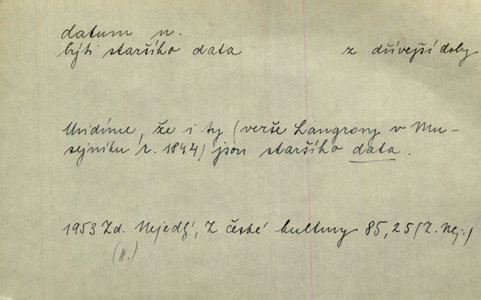 datum n.
býti staršího data z dřívější doby
Vidíme, že i ty (verše Langrovy v Mu-
sejníku r. 1844) jsou staršího data.
1953 Zd. Nejedlý, Z české kultury 85, 25 (Z. Nej.)
(N.)